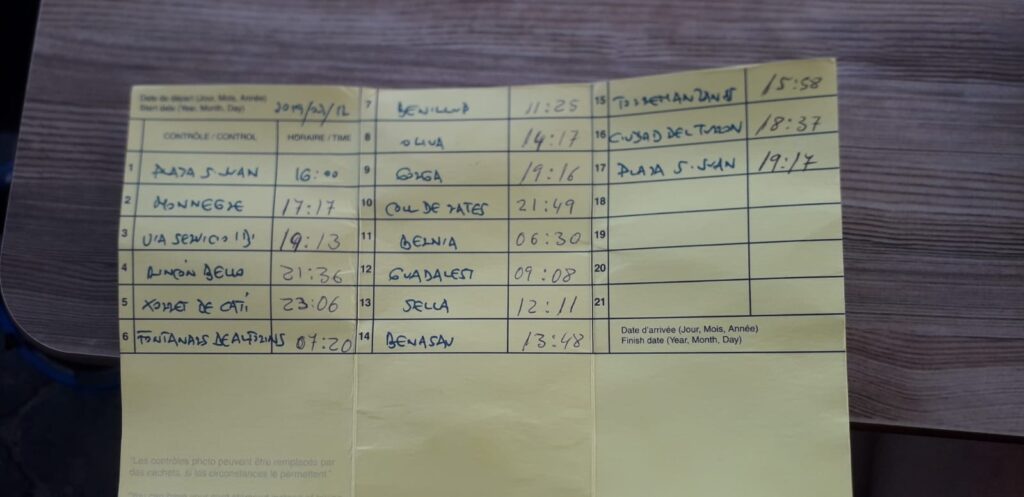 Date de départ (Jour, Mois, Année)
Start date (Year, Month, Day)
2019/23/12
CONTRÔLE / CONTROL HORAIRE / TIME
1 PLAZA S. JUAN 16:00
2 MONNEGRE 17:17
3 VIA SERVICIO 19:13
4 RINCÓN BELLO 21:36
5 XORRET DE CATÍ 23:06
6 FONTANARS DE ALFORINS 07:20
7 BENILLUP 11:25
8 OLIVA 14:17
9 GORGA 19:16
10 COLL DE RATES 21:49
11 BERNIA 06:30
12 GUADALEST 09:08
13 SELLA 12:11
14 BENASAU 13:48
15 TORREMANZANAS 15:58
16 CIUDAD DEL TURRON 18:37
17 PLAZA S. JUAN 19:17
18
19
20
21
Date d'arrivée (Jour, Mois, Année)
Finish date (Year, Month, Day)
"Les contrôles photo peuvent être remplacés par
des cachets, si les circonstances le permettent."